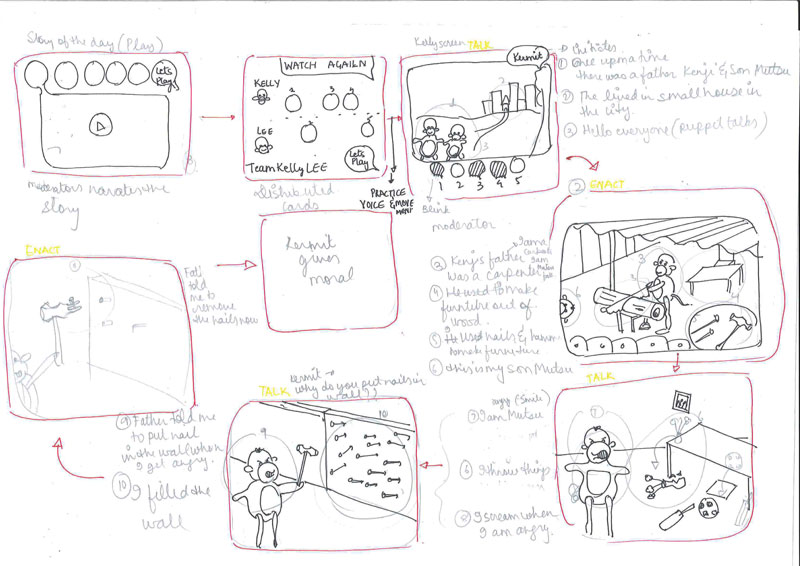 Story of the day (Play)
Let's
Play
moderators narrates the
story
WATCH AGAILN
KELLY
LEE
Let's
Play
Team Kelly LEE
Distributed
cards
PRACTICE
VOICE & MOVE
MENT
Kelly screen TALK
Kermit
1 2 3 4 5
Blink
moderator
① Once upon a time
there was a father Kenji & Son Mutsu
② The lived in small house in
the city.
③ Hello everyone (puppet talks)
② ENACT
I am a
③ Kenji's father
was a carpenter
④ He used to make
furniture out of
wood.
⑤ He used nails & hamm
furniture
⑥ this is my son Mutsu
TALK
angry (Smile)
⑦ I am Mutsu
I throw things
⑧ I scream when
I am angry.
TALK
Kermit →
why do you put nails in
wall??
9
10
⑨ Father told me
to put nail
in the wall (when
I get angry.
⑩ I filled the
wall
ENACT
told
me to
remove
the nails now
Kermit
gives
moral